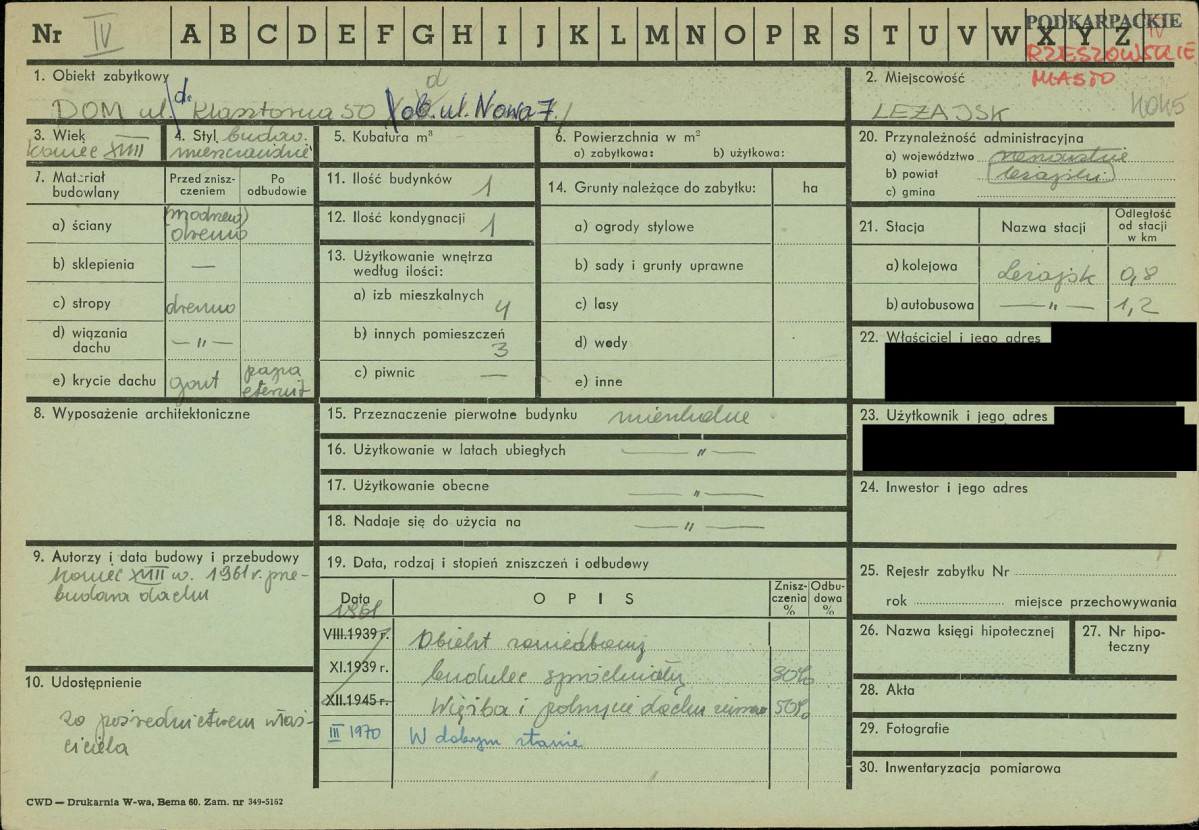 Nr IV A B C D E F G H I J K L M N O P R S T U V W X Y Z
PODKARPACKIE
IV
RZESZOWSKIE
MIASTO
1. Obiekt zabytkowy
d
DOM ul. d. Klasztorna 50 ob. ul. Nowa 7.
2. Miejscowość
LEŻAJSK
3. Wiek
koniec XVIII
4. Styl budow.
mieszczański
5. Kubatura m³
6. Powierzchnia w m²
a) zabytkowa: b) użytkowa:
7. Materiał budowlany
Przed zniszczeniem
Po odbudowie
a) ściany modrzew drewno
b) sklepienia —
c) stropy drewno
d) wiązania dachu —"—
e) krycie dachu gont papa eternit
8. Wyposażenie architektoniczne
9. Autorzy i data budowy i przebudowy
koniec XVIII w. 1961 r. prze-
budowa dachu
10. Udostępnienie
za pośrednictwem właś-
ciciela
11. Ilość budynków 1
12. Ilość kondygnacji 1
13. Użytkowanie wnętrza
według ilości:
a) izb mieszkalnych 4
b) innych pomieszczeń 3
c) piwnic —
14. Grunty należące do zabytku: ha
a) ogrody stylowe
b) sady i grunty uprawne
c) lasy
d) wody
e) inne
15. Przeznaczenie pierwotne budynku mieszkalne
16. Użytkowanie w latach ubiegłych —"—
17. Użytkowanie obecne —"—
18. Nadaje się do użycia na —"—
19. Data, rodzaj i stopień zniszczeń i odbudowy
Data
O P I S
Zniszczenia %
Odbudowa %
1961
VIII.1939 r. Obiekt zaniedbany
XI.1939 r. budulec spróchniały 30%
XII.1945 r. Więźba i pokrycie dachu 50%
III 1970 W dobrym stanie
20. Przynależność administracyjna
a) województwo rzeszowskie
b) powiat leżajski
c) gmina
21. Stacja
Nazwa stacji
Odległość od stacji w km
a) kolejowa Leżajsk 0,8
b) autobusowa —"— 1,2
22. Właściciel i jego adres
23. Użytkownik i jego adres
24. Inwestor i jego adres
25. Rejestr zabytku Nr
rok miejsce przechowywania
26. Nazwa księgi hipotecznej
27. Nr hipo-
teczny
28. Akta
29. Fotografie
30. Inwentaryzacja pomiarowa
CWD — Drukarnia W-wa, Bema 60. Zam. nr 349-5162